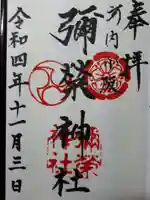 奉拝
河内
彌榮神社
令和四年十一月三日